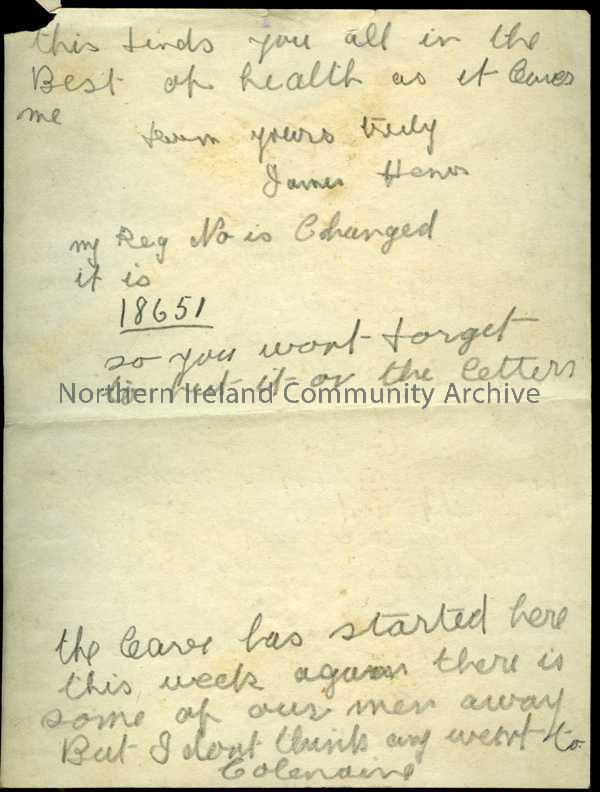 this finds you all in the
Best of health as it leaves
me
from yours truly
James Henry
my Reg No is Changed
it is
18651
so you wont forget
to put it on the letters
Northern Ireland Community Archive
the leave has started here
this week again there is
some of our men away
But I dont think any went to
Colenaine